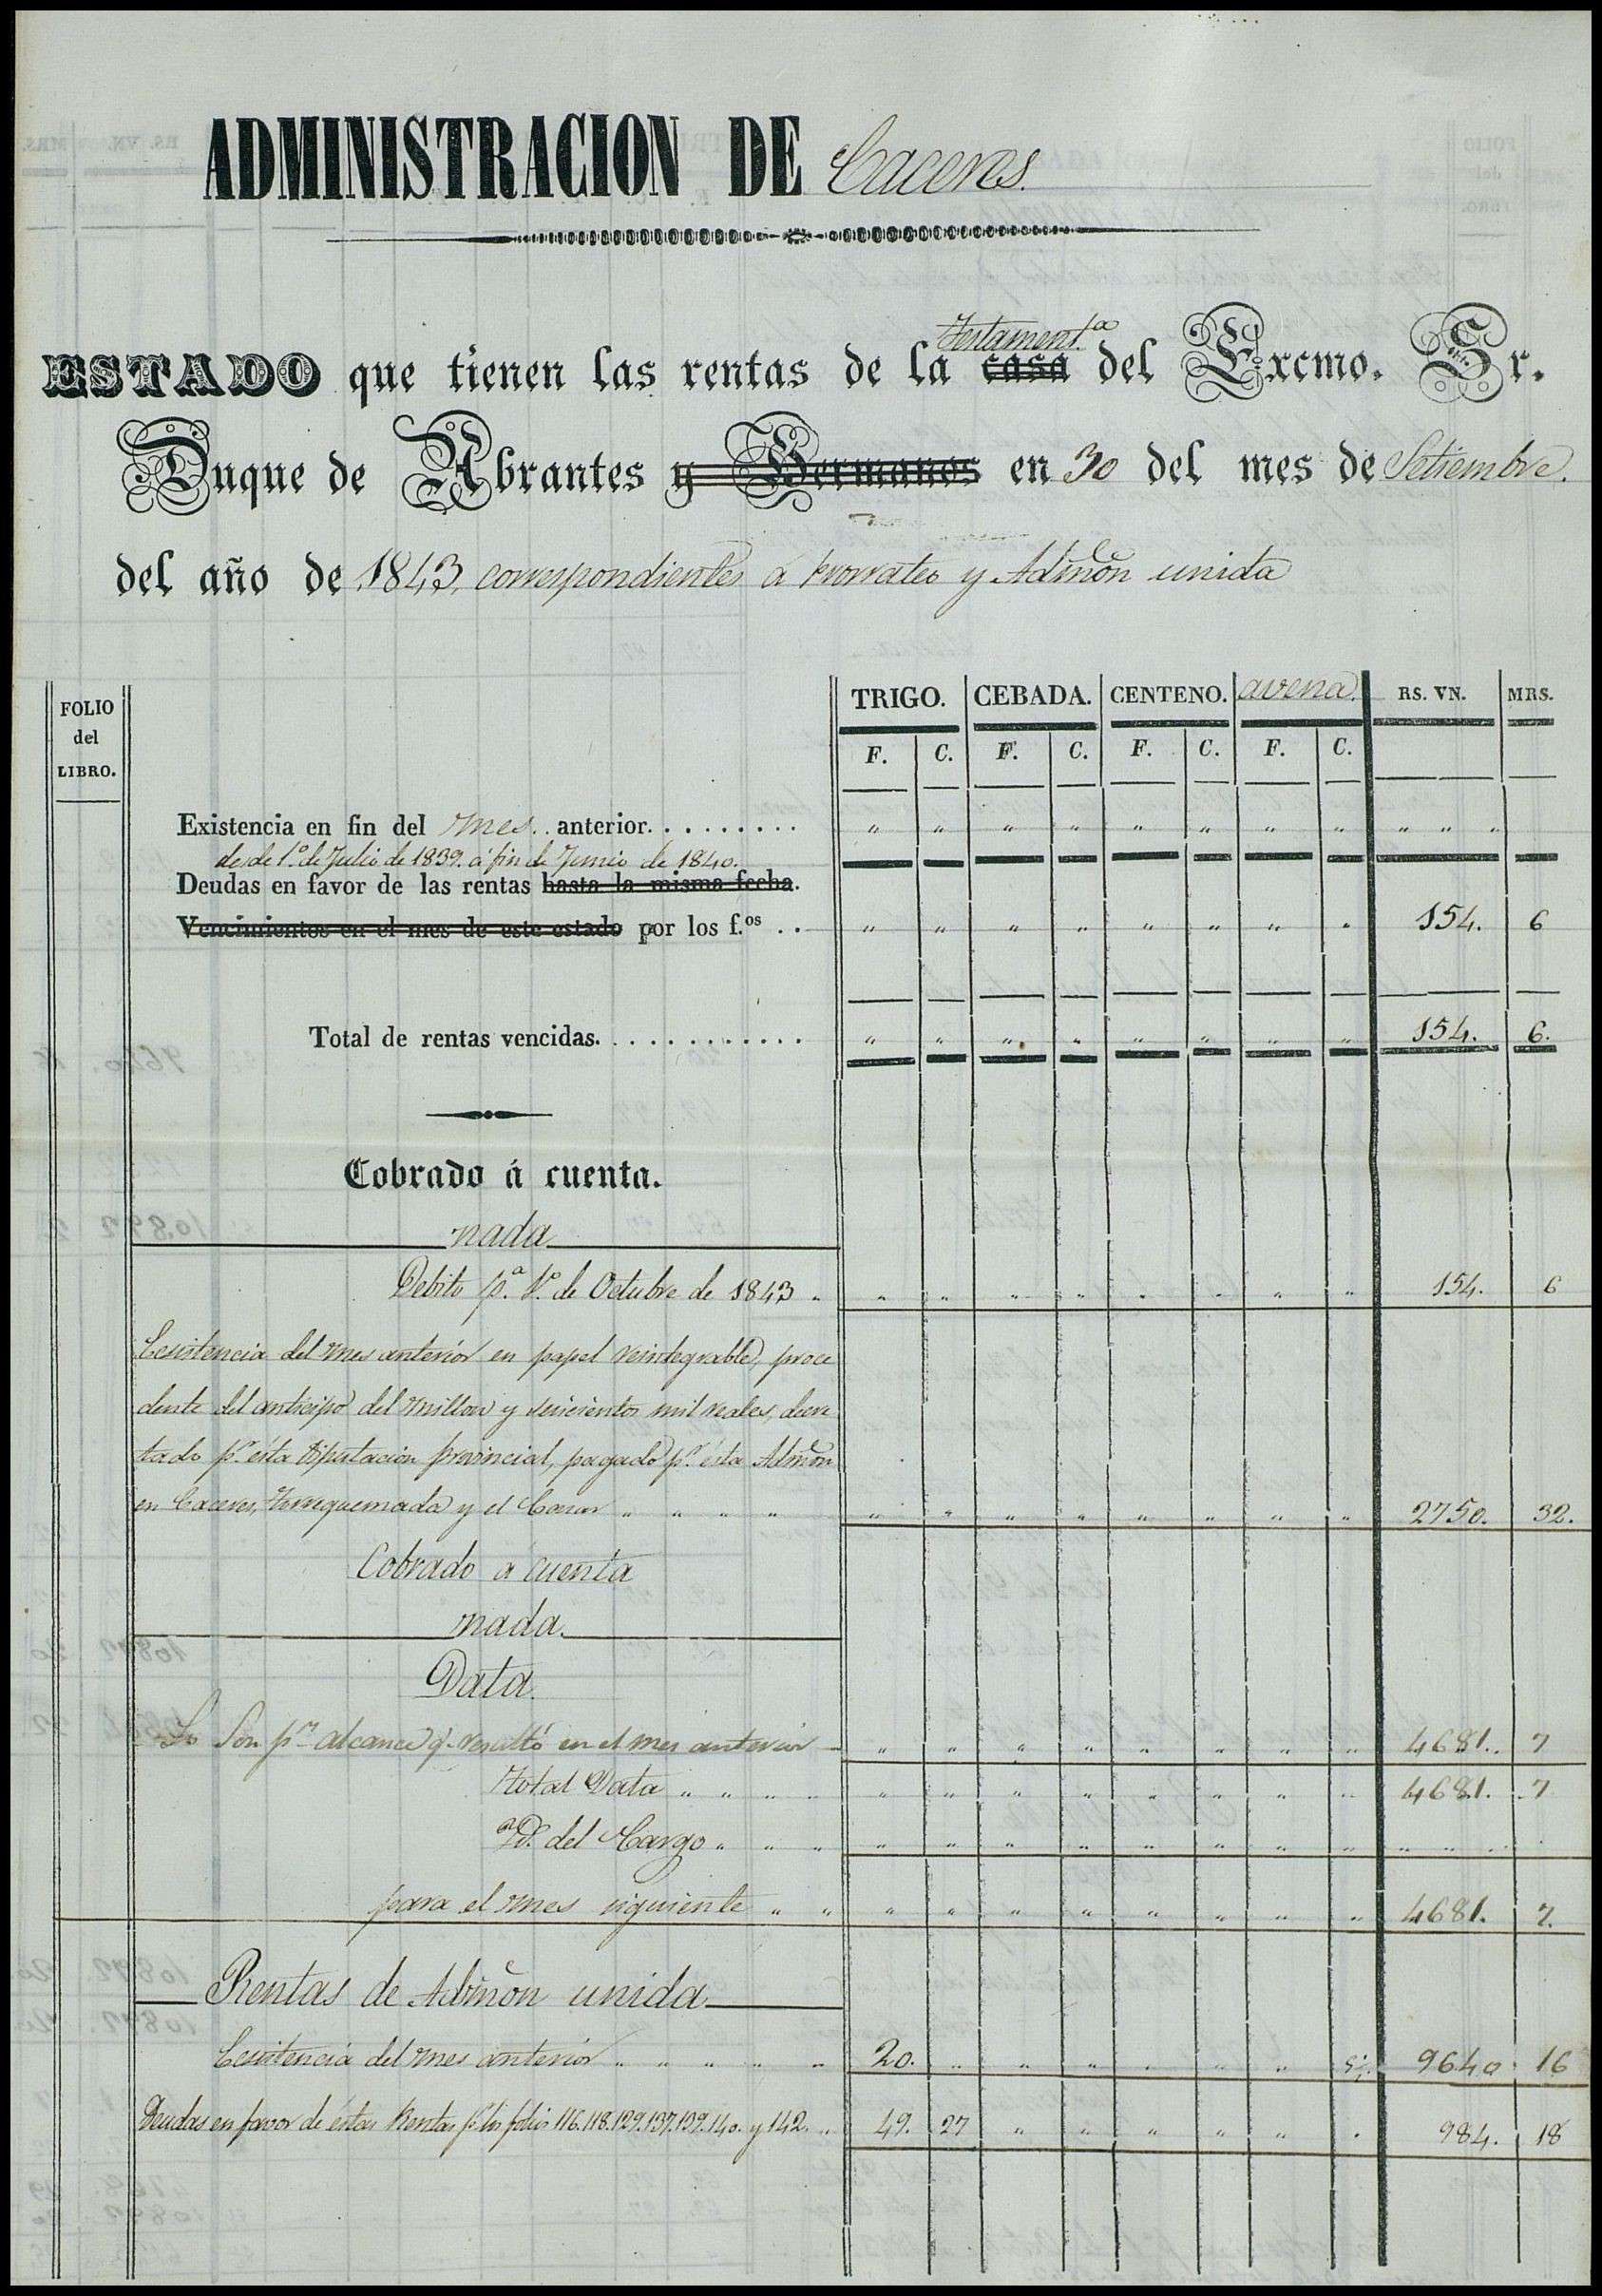 ADMINISTRACION DE Caceres.
Testament.ª
ESTADO que tienen las rentas de la casa del Excmo. Sr.
Duque de Abrantes y Hermanos en 30 del mes de Setiembre.
del año de 1843, correspondientes á prorrateo y Admõn unida
FOLIO del LIBRO.
TRIGO. CEBADA. CENTENO. avena. RS. VN. MRS.
F. C. F. C. F. C. F. C.
Existencia en fin del mes anterior. . . . . . . . . " " " " " " " " " " "
desde 1.º de Julio de 1839. á fin de Junio de 1840.
Deudas en favor de las rentas hasta la misma fecha.
Vencimientos en el mes de este estado por los f.os . . " " " " " " " " 154. 6
Total de rentas vencidas. . . . . . . . . . . . " " " " " " " " 154. 6.
Cobrado á cuenta.
nada
Debito p.ª 1.º de Octubre de 1843 " " " " " " " " " 154. 6
Cesistencia del mes anterior en papel reintegrable, proce
dente del anticipo del millon y seiscientos mil reales, decre
tado p.r ésta Diputacion provincial, pagado p.r ésta Admõn
en Caceres, Torrequemada y el Casar " " " " " " " " " " " " 2750. 32.
Cobrado á cuenta
nada.
Data.
Son p.r alcance q.e resultó en el mes anterior " " " " " " " " 4681. 7
Total Data " " " " " " " " " " " " 4681. 7
Yd. del Cargo " " " " " " " " " " " " " "
para el mes siguiente " " " " " " " " " " 4681. 7.
Rentas de Admõn unida
Cesistencia del mes anterior " " " " " 20. " " " " " " 9640. 16
Deudas en favor de éstas Rentas p.r los folios 116. 118. 129. 137. 139. 140. y 142. " 49. 27 " " " " " " 984. 18